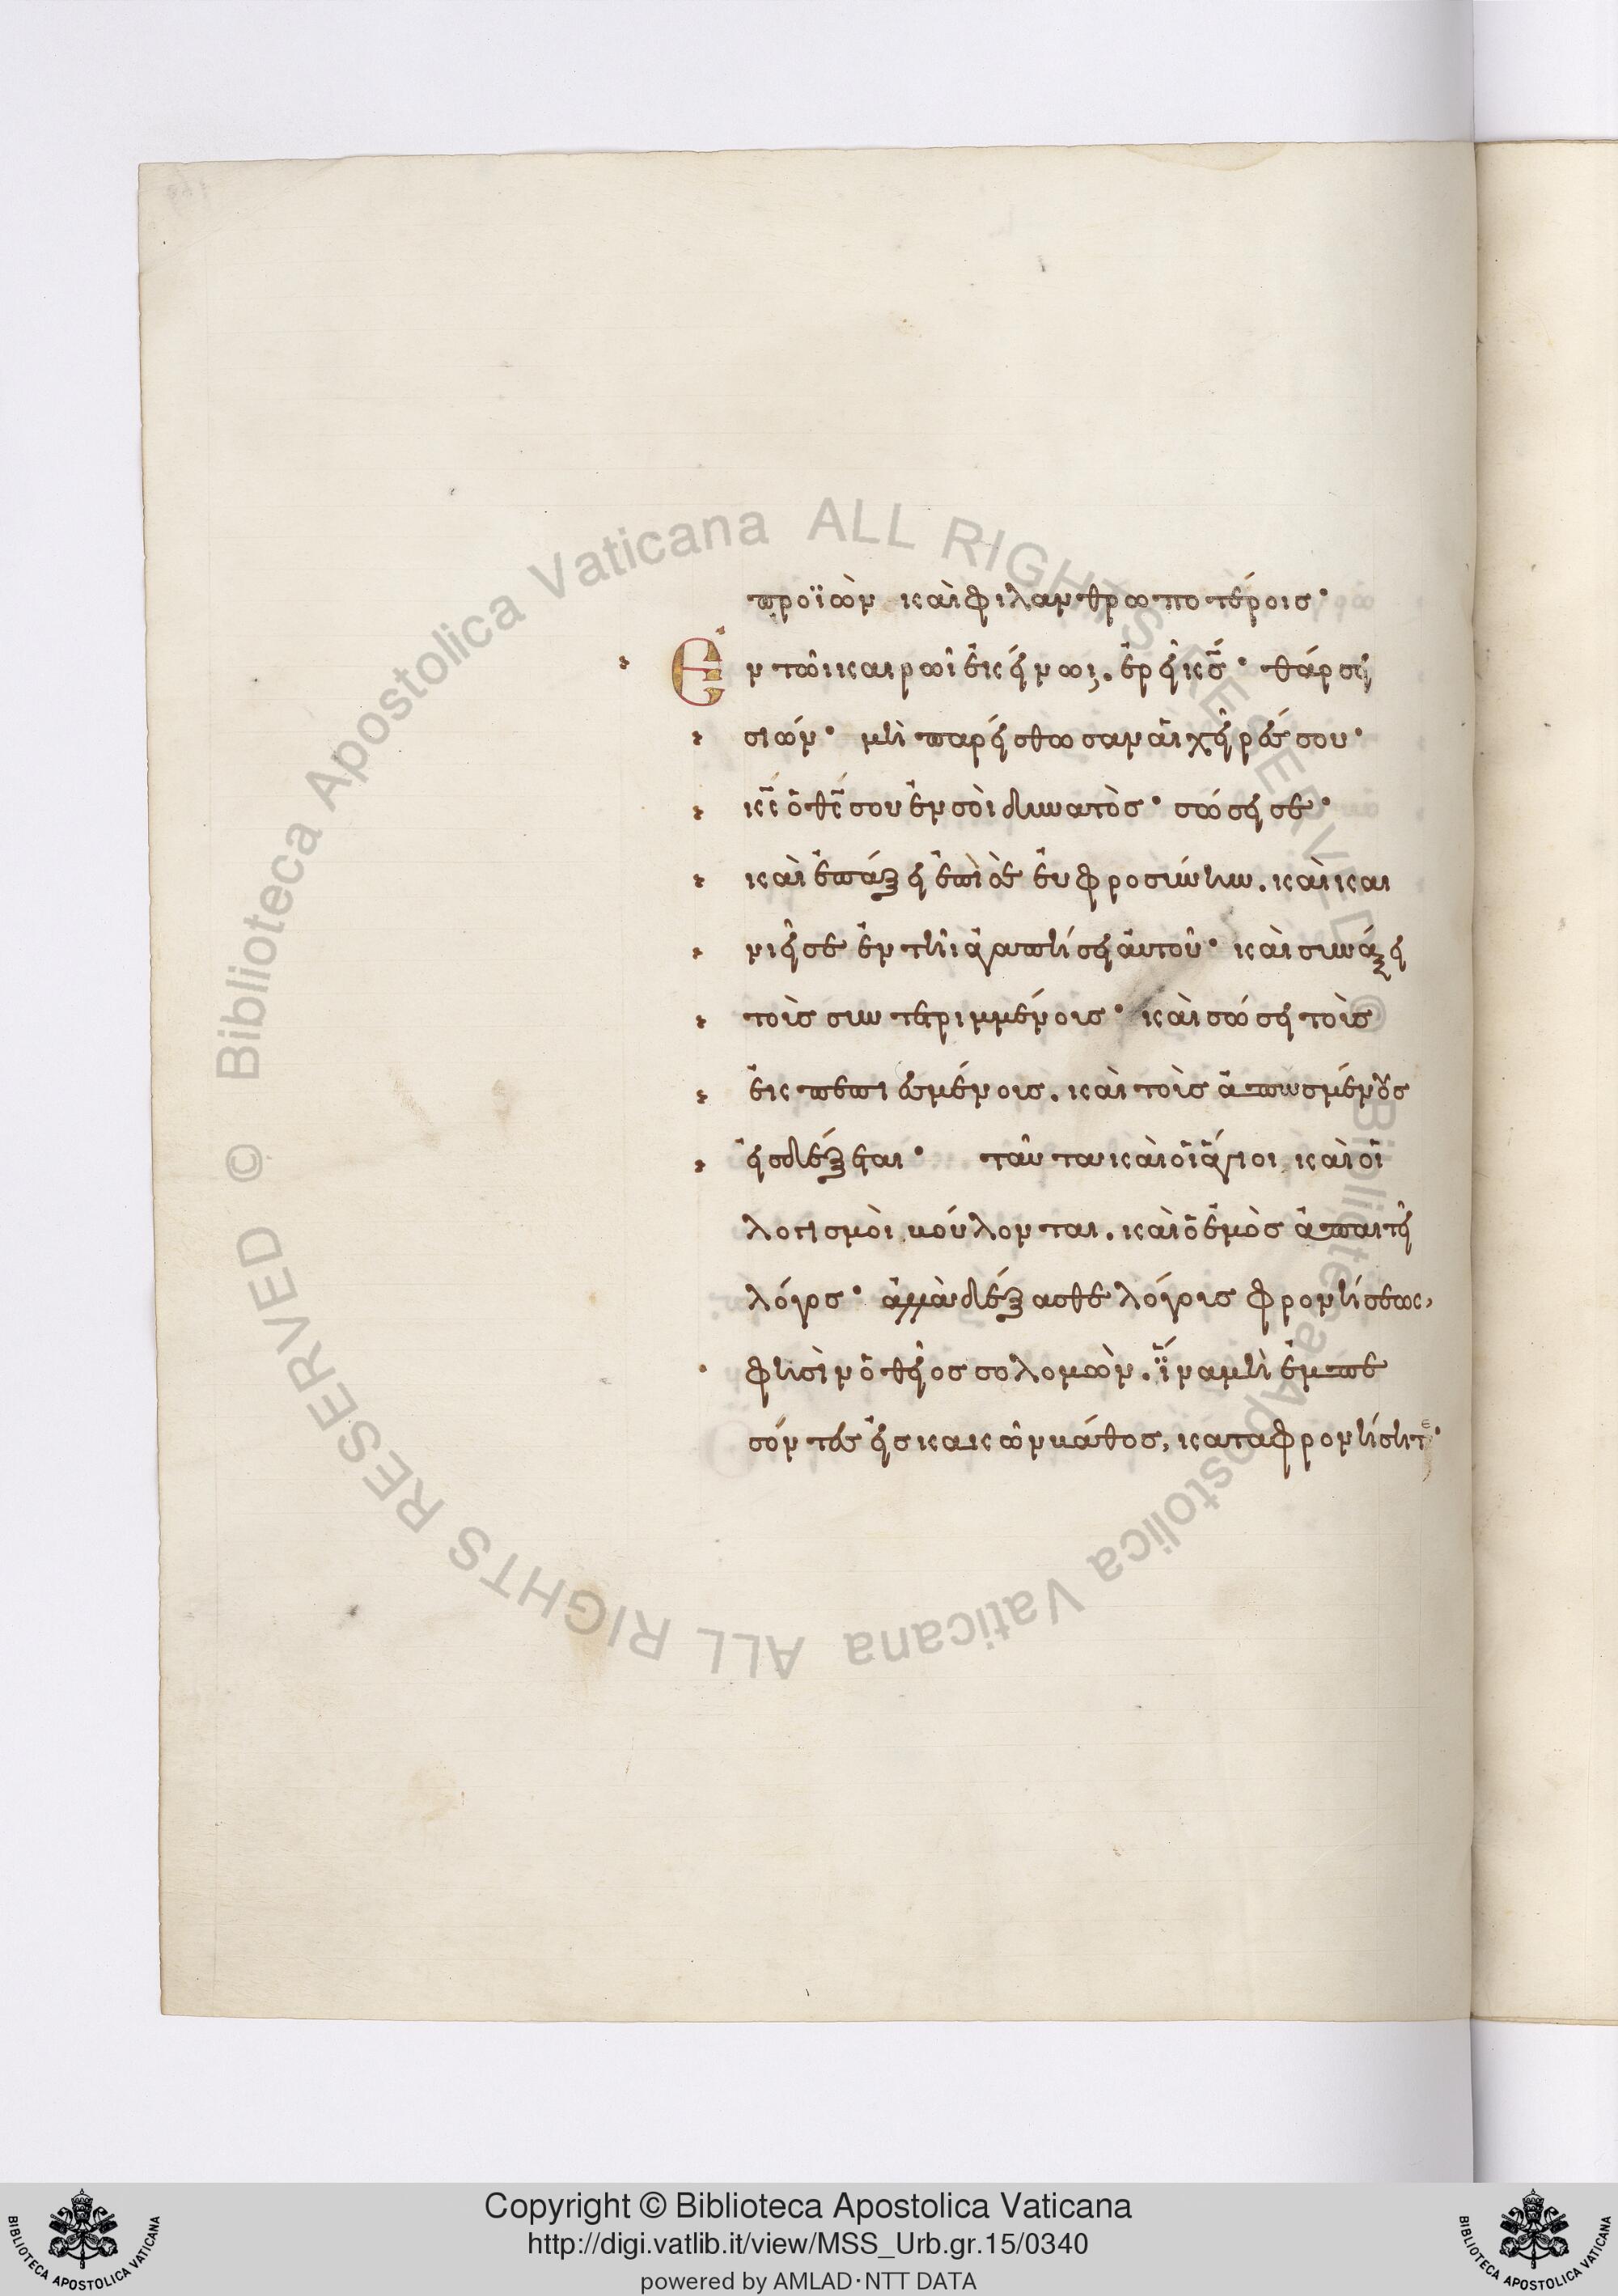 προϊὼν καὶ φιλανθρωποτέροις·
Ἐν τῶι καιρῶι ἐκείνωι. ἐρεῖ κς· θάρσει
σιών· μὴ παρείσθωσαν αἱ χεῖρές σου·
κς ὁ θς σου ἐν σοὶ δυνατὸς· σώσει σε·
καὶ ἐπάξει ἐπὶ σὲ εὐφροσύνην. καὶ και
νιεῖ σε ἐν τῆι ἀγαπήσει αὐτοῦ· καὶ συνάξει
τοὺς συντετριμμένους· καὶ σώσει τοὺς
ἐκπεπιεσμένους. καὶ τοὺς ἀπωσμένους
εἰσδέξεται· ταῦτα καὶ οἱ ἅγιοι καὶ οἱ
λογισμοὶ βούλονται. καὶ ὁ ἐμὸς ἀπαιτεῖ
λόγος· ἀλλὰ δέξασθε λόγους φρονήσεως,
φησὶν ὁ θεῖος σολομών. ἵνα μὴ ἐμπε
σόντες εἰς κακῶν βάθος, καταφρονήσητε·
Biblioteca Apostolica Vaticana ALL RIGHTS RESERVED ©
Biblioteca Apostolica Vaticana ALL RIGHTS RESERVED ©
Copyright © Biblioteca Apostolica Vaticana
http://digi.vatlib.it/view/MSS_Urb.gr.15/0340
powered by AMLAD·NTT DATA
BIBLIOTECA APOSTOLICA VATICANA
BIBLIOTECA APOSTOLICA VATICANA